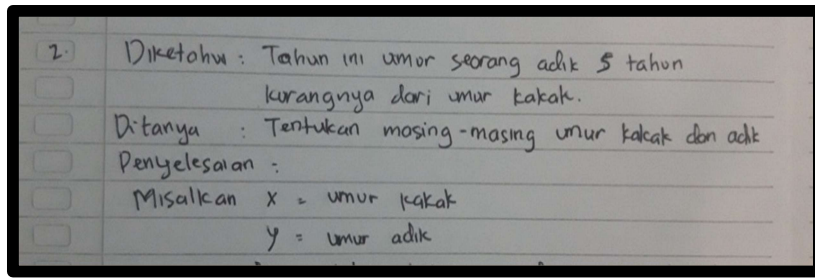 2. Diketahui : Tahun ini umur seorang adik 5 tahun
kurangnya dari umur kakak.
Ditanya : Tentukan masing-masing umur kakak dan adik
Penyelesaian :
Misalkan x = umur kakak
y = umur adik